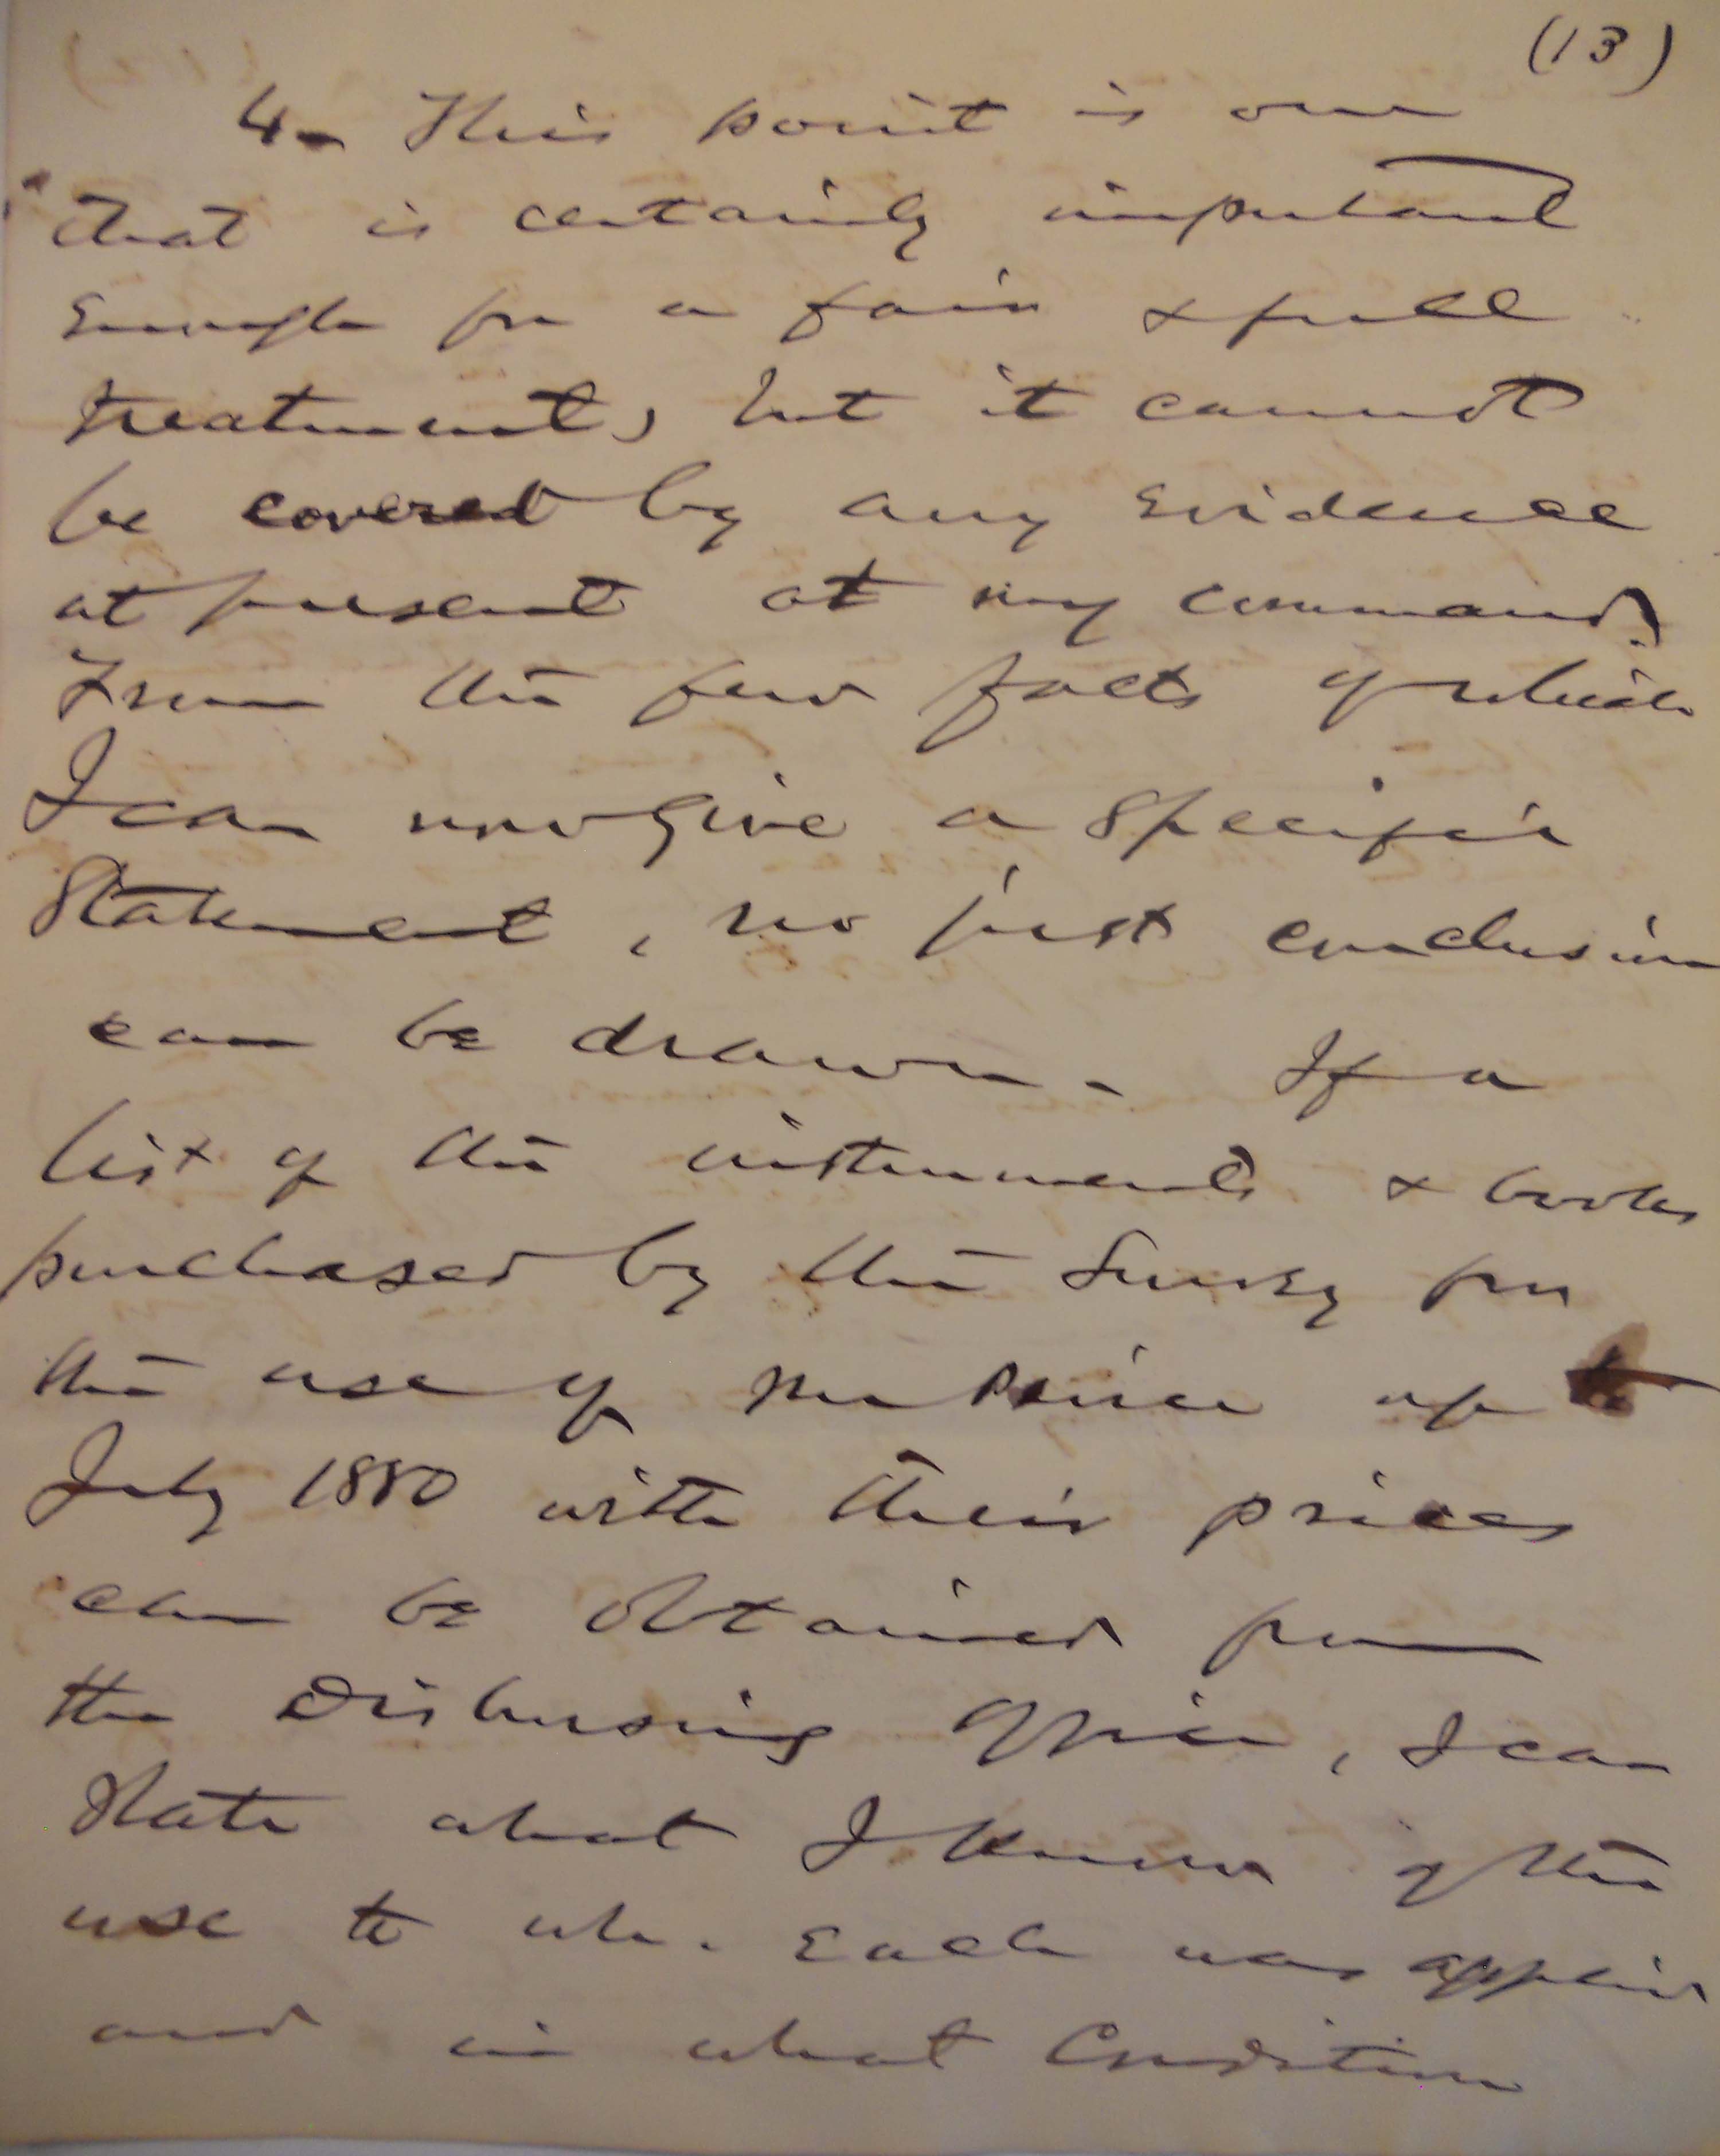 (13)
4. This point is one
that is certainly important
enough for a fair & full
treatment, but it cannot
be covered by any evidence
at present at my command.
From the few facts of which
I can now give a specific
statement, no just conclusion
can be drawn. If a
list of the instruments & books
purchased by the Survey for
the use of Mr Peirce up to
July 1880 with their prices
can be obtained from
the Disbursing Office, I can
state what I know of the
use to wh. each was applied
and in what condition